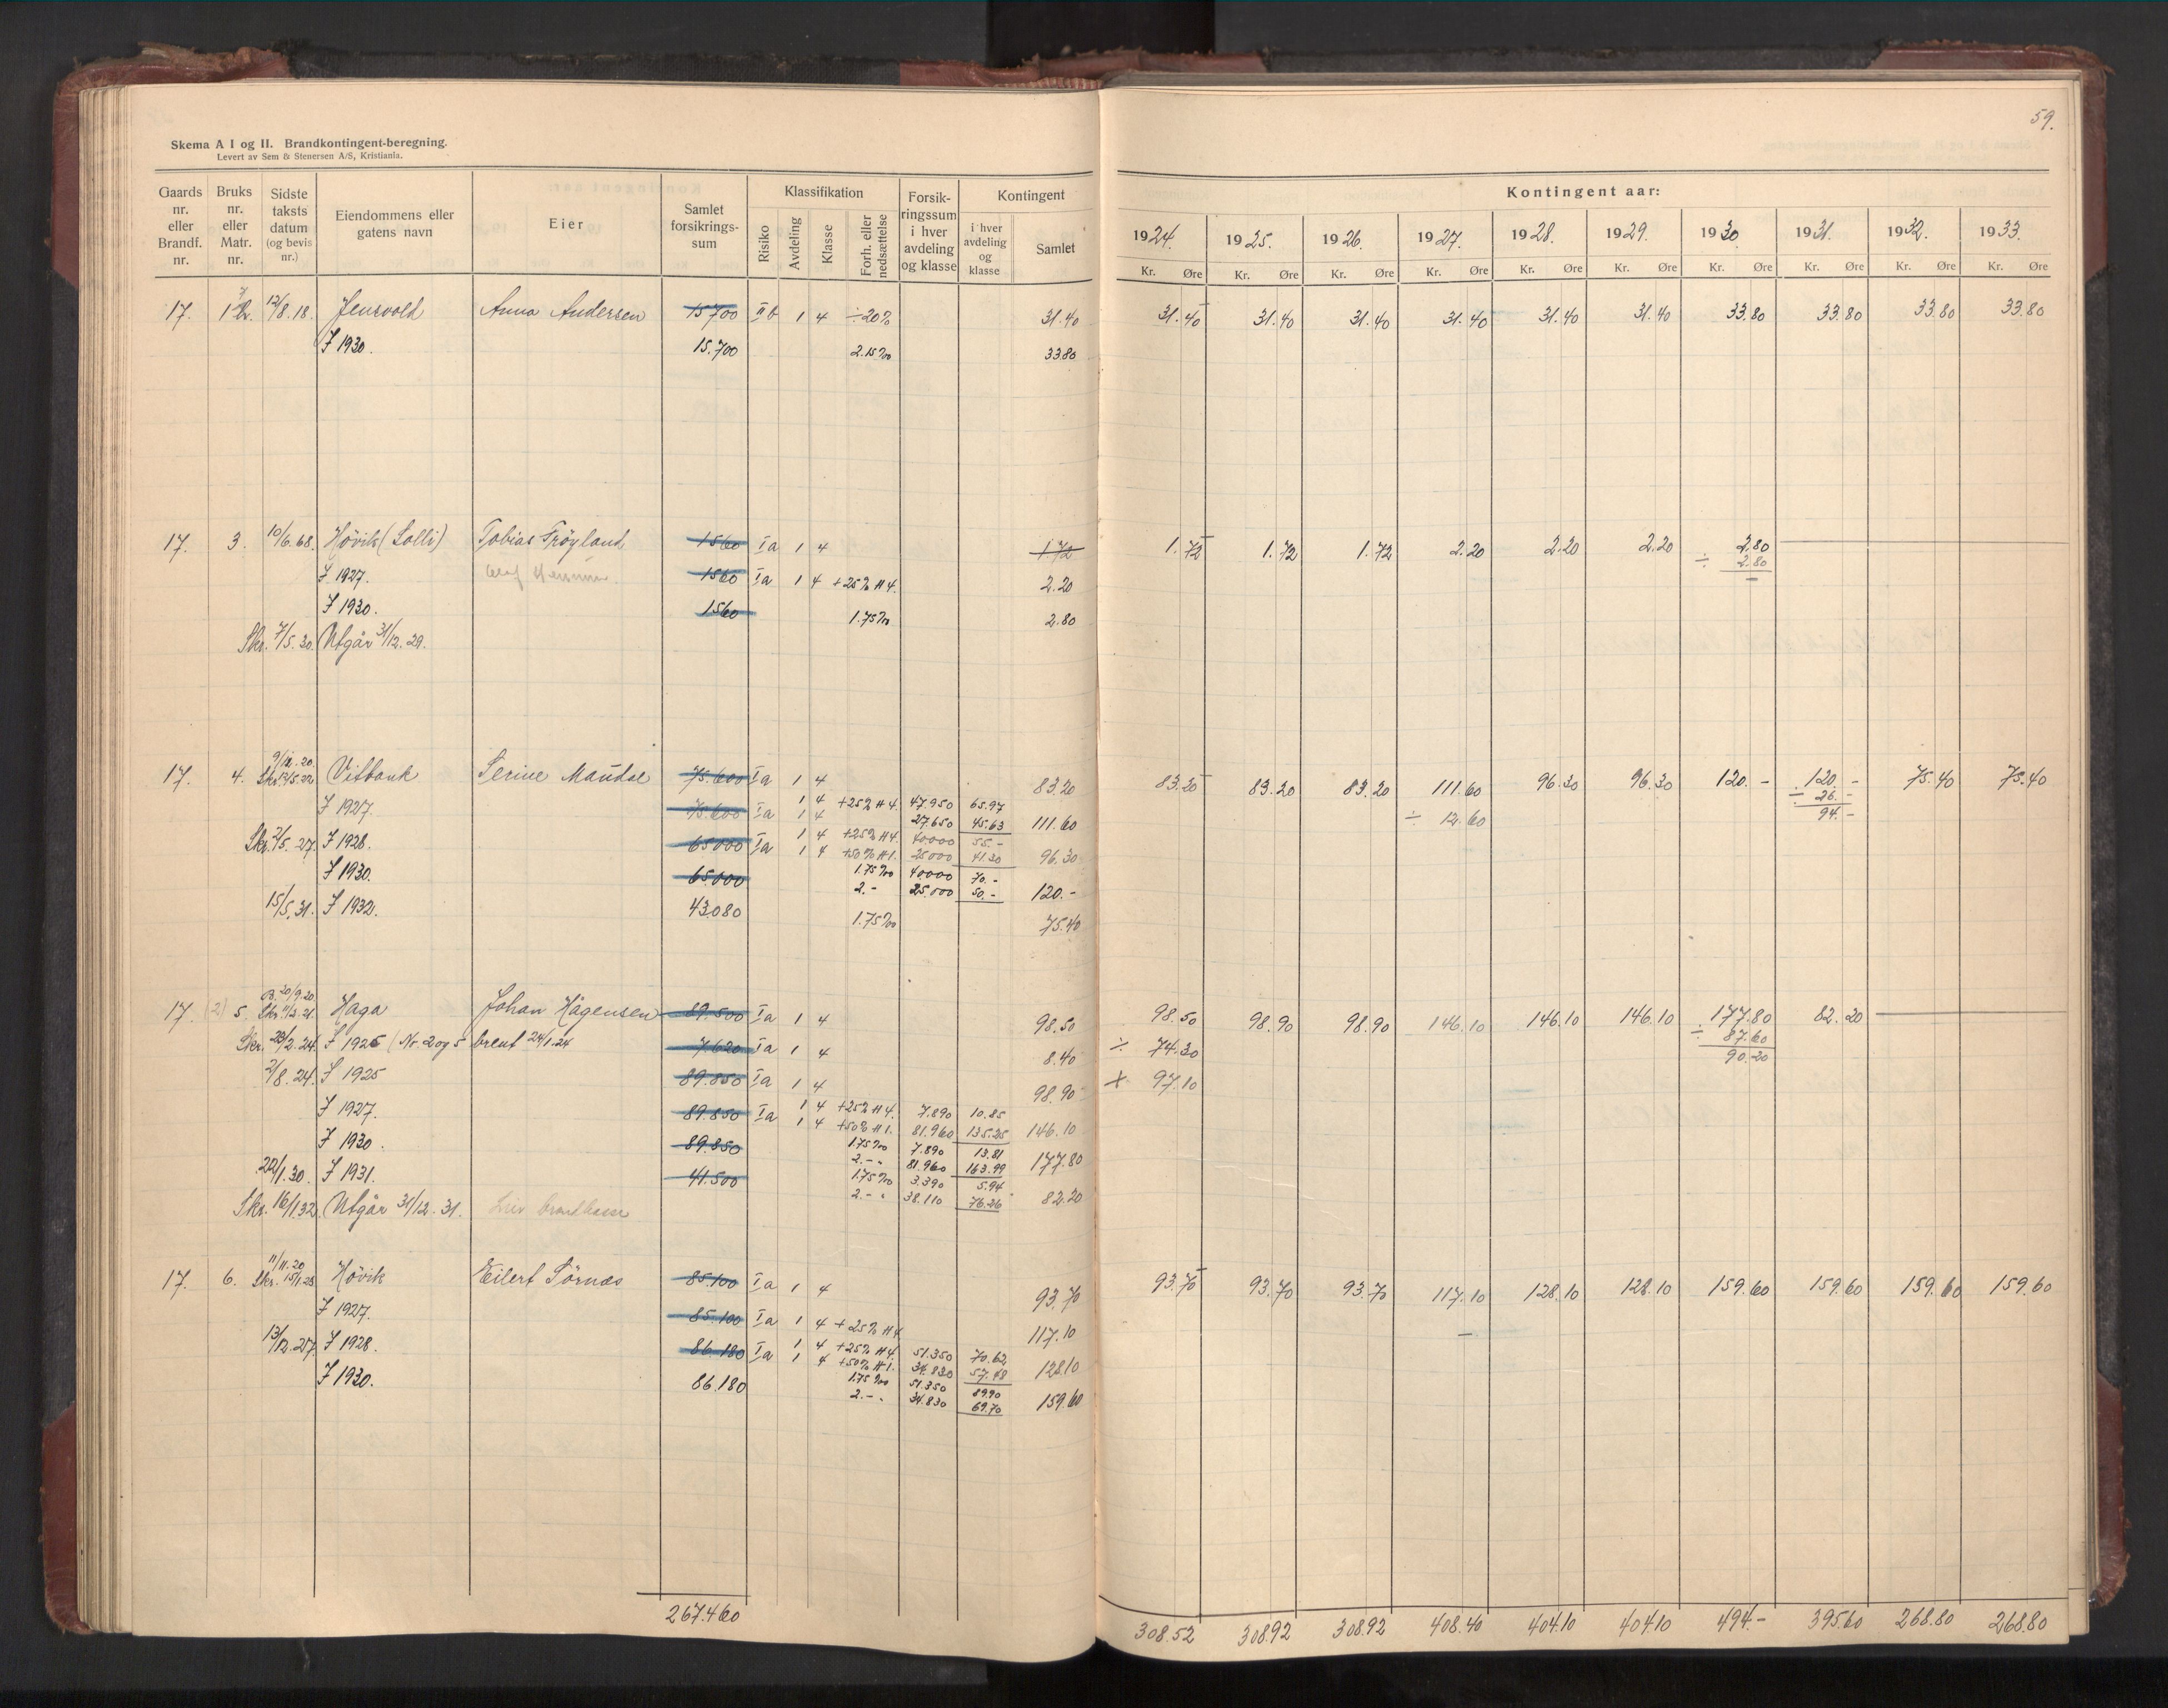 59.
Skema A I og II. Brandkontingent-beregning.
Levert av Sem & Stenersen A/S, Kristiania.
Gaards nr. eller Brandf. nr.
Bruks nr. eller Matr. nr.
Sidste taksts datum (og bevis nr.)
Eiendommens eller gatens navn
Eier
Samlet forsikrings- sum
Klassifikation
Risiko
Avdeling
Klasse
Forh. eller nedsættelse
Forsik- ringssum i hver avdeling og klasse
Kontingent
i hver avdeling og klasse
Samlet
Kontingent aar:
1924. 1925. 1926. 1927. 1928. 1929. 1930. 1931. 1932. 1933.
Kr. Øre Kr. Øre Kr. Øre Kr. Øre Kr. Øre Kr. Øre Kr. Øre Kr. Øre Kr. Øre Kr. Øre
17. 12/8.18. Jensvold Anna Andersen 15700 IIb 1 4 ÷20% 31.40 31.40 31.40 31.40 31.40 31.40 31.40 33.80 33.80 33.80 33.80
F 1930. 15.700 2.15‰ 33.80
17. 3. 10/6.68. Hövik (Solli) Tobias Fröyland 1560 Ia 1 4 1 72 1.72 1.72 1.72 2.20 2.20 2.20 2.80
÷ 2.80
F 1927. 1560 Ia 1 4 +25% H4. 2.20
F 1930. 1560 1.75‰ 2.80
Skr. 7/5.30. Utgår 31/12.29.
17. 4. 9/12.20. Skr. 12/5.22 Vitbank Serine Mandal 75.600 Ia 1 4 83.20 83.20 83.20 83.20 111.60 96.30 96.30 120.- 120.- 75.40 75.40
÷ 12.60 ÷ 26.-
94.-
F 1927. 75.600 Ia 1 4 +25% H4. 47.950 65.97
1 4 27.650 45.63 111.60
Skr. 2/5.27. F 1928. 65000 Ia 1 4 +25% H4. 40.000 55.-
1 4 +50% H1. 25000 41.30 96.30
F 1930. 65.000 1.75‰ 40000 70.-
2.- 25.000 50.- 120.-
15/5.31. F 1932. 43080 1.75‰ 75.40
17. (2) 5. B. 20/9.20. Skr. 11/3.21. Haga Johan Hågensen 89.500 Ia 1 4 98.50 98.50 98.90 98.90 146.10 146.10 146.10 177.80 82.20
÷ 74.30 ÷ 87.60
+ 97.10 90.20
Skr. 29/2.24. F 1925 (Nr. 2 og 5 brent 24/1.24 7.620 Ia 1 4 8.40
2/8.24. F 1925 89.850 Ia 1 4 98.90
F 1927. 89.850 Ia 1 4 +25% H4. 7.890 10.85
1 4 +50% H1. 81.960 135.25 146.10
F 1930. 89.850 1.75‰ 7.890 13.81
2.- " 81.960 163.99 177.80
22/1.30. F 1931. 41.500 1.75‰ 3.390 5.94
2.- " 38.110 76.26 82.20
Skr. 16/1.32. Utgår 31/12.31.
17. 6. 11/11.20 Skr. 15/1.23 Hövik Eilert Törnes 85.100 Ia 1 4 93.70 93.70 93.70 93.70 117.10 128.10 128.10 159.60 159.60 159.60 159.60
F 1927. 85.100 Ia 1 4 +25% H4. 117.10
13/12.27. F 1928. 86.180 Ia 1 4 +25% H4. 51.350 70.62
1 4 +50% H1. 34.830 57.48 128.10
F 1930. 86.180 1.75‰ 51.350 89.90
2.- " 34.830 69.70 159.60
267.460 308.52 308.92 308.92 408.40 404.10 404.10 494.- 395.60 268.80 268.80